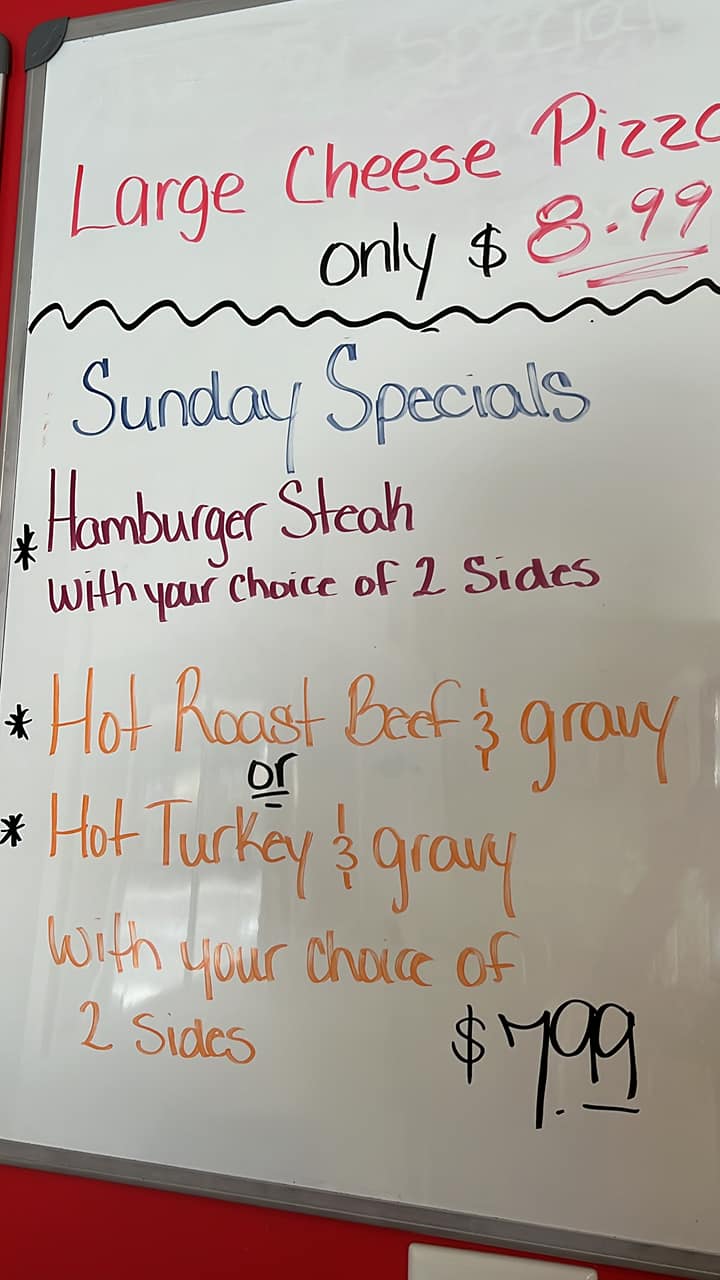 Special
Large Cheese Pizza
only $ 8.99
Sunday Specials
* Hamburger Steak
with your choice of 2 Sides
* Hot Roast Beef & gravy
or
* Hot Turkey & gravy
with your choice of
2 Sides
$7.99